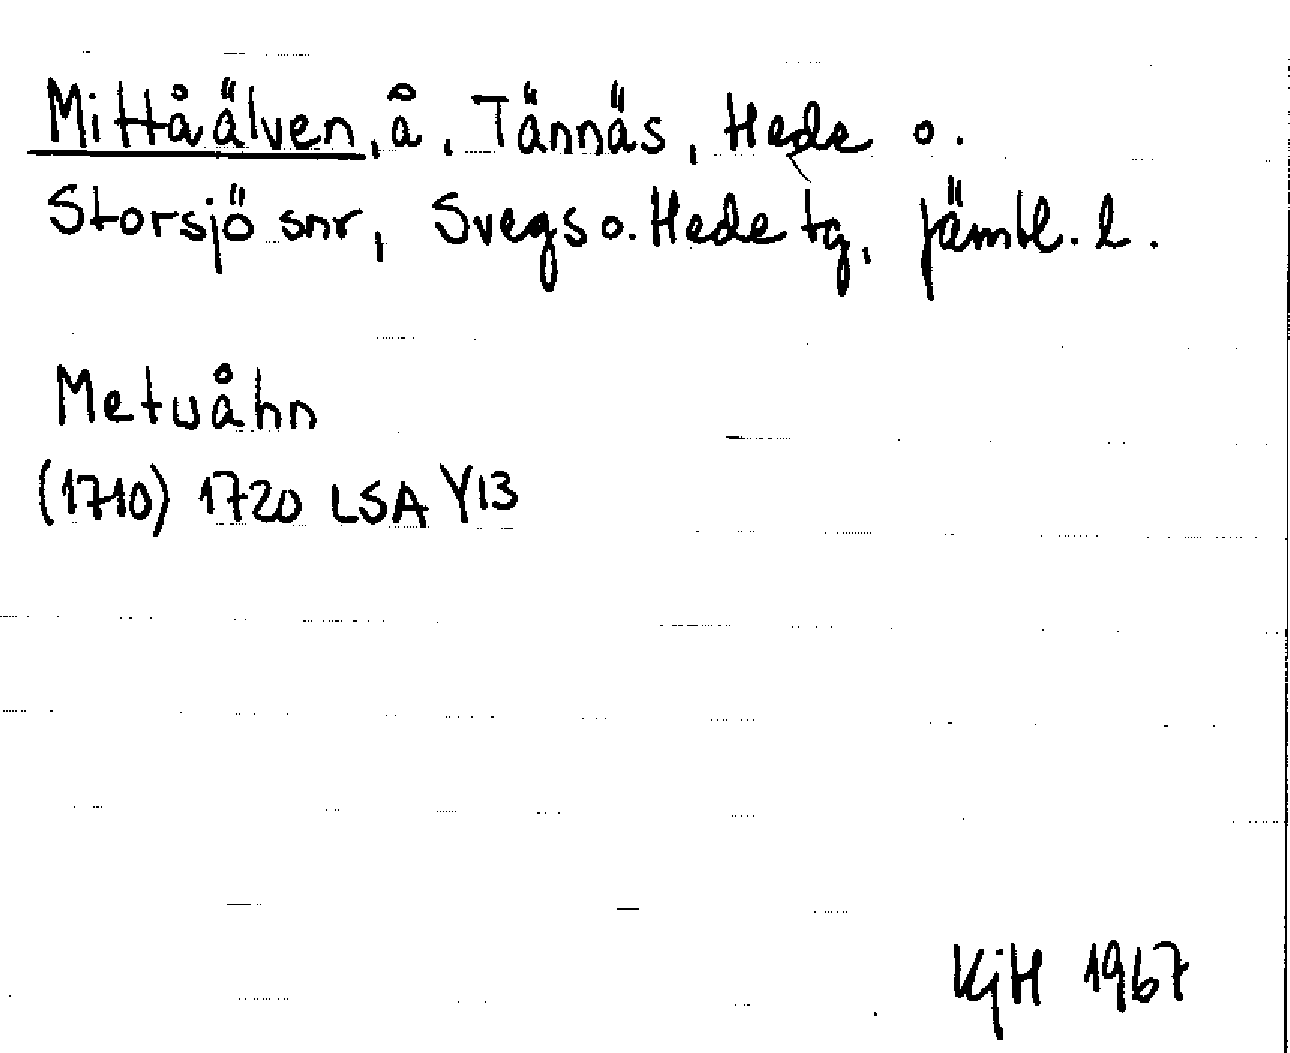 Mittåälven, å, Tännäs, Hede o.
Storsjö snr, Svegs o. Hede tg, Jämtl. l.
Metuåhn
(1710) 1720 LSA Y13
KjH 1967